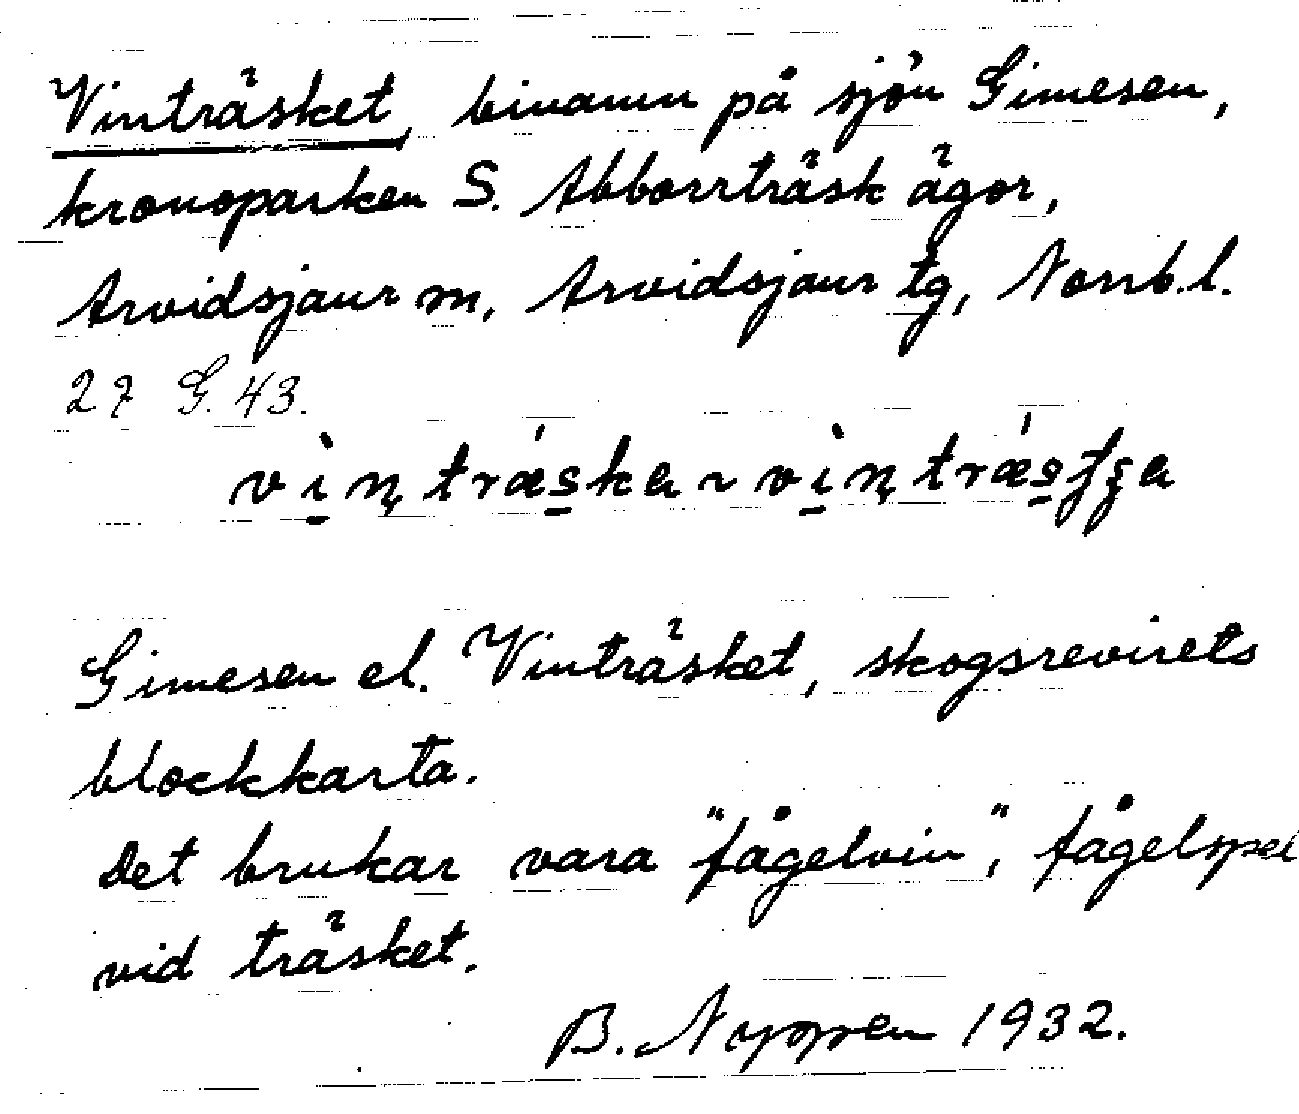 Vinträsket, binamn på sjön Gimesen,
kronoparken S. Abborrträsk ägor,
Arvidsjaur sn, Arvidsjaur tg, Norrb.l.
27 G. 43.
Gimesen el. Vinträsket, skogsrevirets
blockkarta.
det brukar vara "fågelvin", fågelspel
vid träsket.
B. Nyppen 1932.